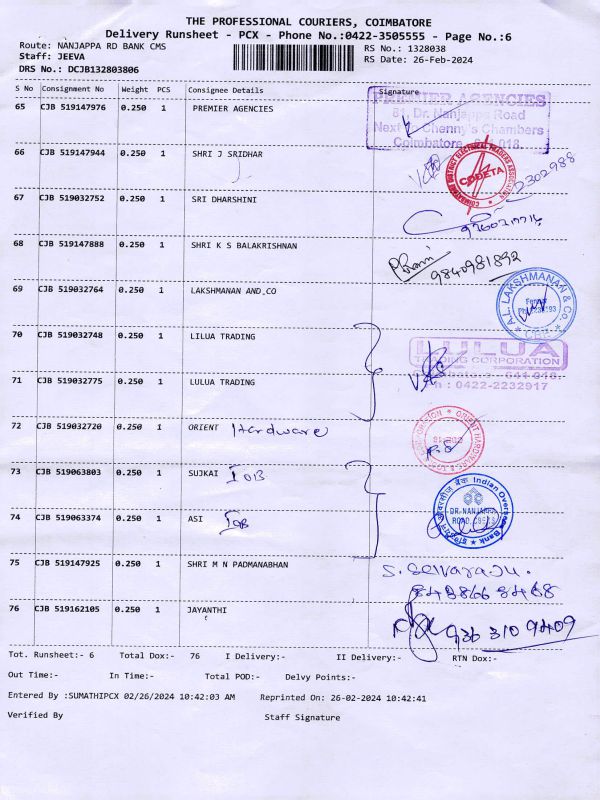 THE PROFESSIONAL COURIERS, COIMBATORE
Delivery Runsheet - PCX - Phone No.:0422-3505555 - Page No.:6
Route: NANJAPPA RD BANK CMS RS No.: 1328038
Staff: JEEVA RS Date: 26-Feb-2024
DRS No.: DCJB132803806
S No Consignment No Weight PCS Consignee Details Signature
65 CJB 519147976 0.250 1 PREMIER AGENCIES
PREMIER AGENCIES
81, Dr. Nanjappa Road
Next To Chenny's Chambers
Coimbatore - 641 018.
66 CJB 519147944 0.250 1 SHRI J SRIDHAR
COIMBATORE DISTRICT ELECTRICAL TRADERS ASSOCIATION
CDDETA
2302988
67 CJB 519032752 0.250 1 SRI DHARSHINI
68 CJB 519147888 0.250 1 SHRI K S BALAKRISHNAN
9840981892
69 CJB 519032764 0.250 1 LAKSHMANAN AND.CO
A.L. LAKSHMANAN & Co.
70 CJB 519032748 0.250 1 LILUA TRADING
LULUA
TRADING CORPORATION
Ph : 0422-2232917
71 CJB 519032775 0.250 1 LULUA TRADING
72 CJB 519032720 0.250 1 ORIENT Hardware
73 CJB 519063803 0.250 1 SUJKAI IOB
Indian Overseas Bank
DR. NANJAPPA
ROAD, CBE-18
74 CJB 519063374 0.250 1 ASI IOB
75 CJB 519147925 0.250 1 SHRI M N PADMANABHAN
S. Selvaraju.
76 CJB 519162105 0.250 1 JAYANTHI
936 310 9409
Tot. Runsheet:- 6 Total Dox:- 76 I Delivery:- II Delivery:- RTN Dox:-
Out Time:- In Time:- Total POD:- Delvy Points:-
Entered By :SUMATHIPCX 02/26/2024 10:42:03 AM Reprinted On: 26-02-2024 10:42:41
Verified By Staff Signature